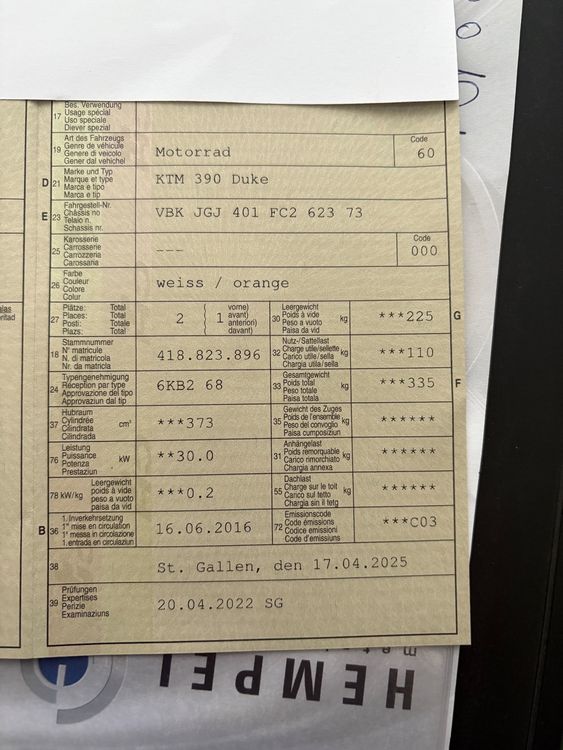 Bes. Verwendung
17 Usage spécial
Uso speciale
Diever spezial
Art des Fahrzeugs
19 Genre de véhicule
Genere di veicolo
Gener dal vehichel
Motorrad
Code
60
Marke und Typ
D 21 Marque et type
Marca e tipo
Marca e tip
KTM 390 Duke
Fahrgestell-Nr.
E 23 Châssis no
Telaio n.
Schassis nr.
VBK JGJ 401 FC2 623 73
Karosserie
25 Carrosserie
Carrozzeria
Carossaria
---
Code
000
Farbe
26 Couleur
Colore
Colur
weiss / orange
Plätze: Total
27 Places: Total
Posti: Totale
Plazs: Total
2 ( 1
vorne)
avant)
anteriori)
davant)
Leergewicht
30 Poids à vide kg
Peso a vuoto
Paisa da vid
***225 G
Stammnummer
18 N° matricule
N. di matricola
Nr. da matricla
418.823.896
Nutz-/Sattellast
32 Charge utile/sellette kg
Carico utile/sella
Chargia utila/sella
***110
Typengenehmigung
24 Réception par type
Approvazione del tipo
Approvaziun dal tip
6KB2 68
Gesamtgewicht
33 Poids total kg
Peso totale
Paisa totala
***335 F
Hubraum
37 Cylindrée cm³
Cilindrata
Cilindrada
***373
Gewicht des Zuges
35 Poids de l'ensemble kg
Peso del convoglio
Paisa cumposiziun
******
Leistung
76 Puissance kW
Potenza
Prestaziun
**30.0
Anhängelast
31 Poids remorquable kg
Carico rimorchiato
Chargia annexa
******
Leergewicht
78 kW/kg poids à vide
peso a vuoto
paisa da vid
***0.2
Dachlast
55 Charge sur le toit kg
Carico sul tetto
Chargia sin il tetg
******
1. Inverkehrsetzung
B 36 1re mise en circulation
1a messa in circolazione
1. entrada en circulaziun
16.06.2016
Emissionscode
72 Code émissions
Codice emissioni
Code d'emissiuns
***C03
38
St. Gallen, den 17.04.2025
Prüfungen
39 Expertises
Perizie
Examinaziuns
20.04.2022 SG
HEMPEL